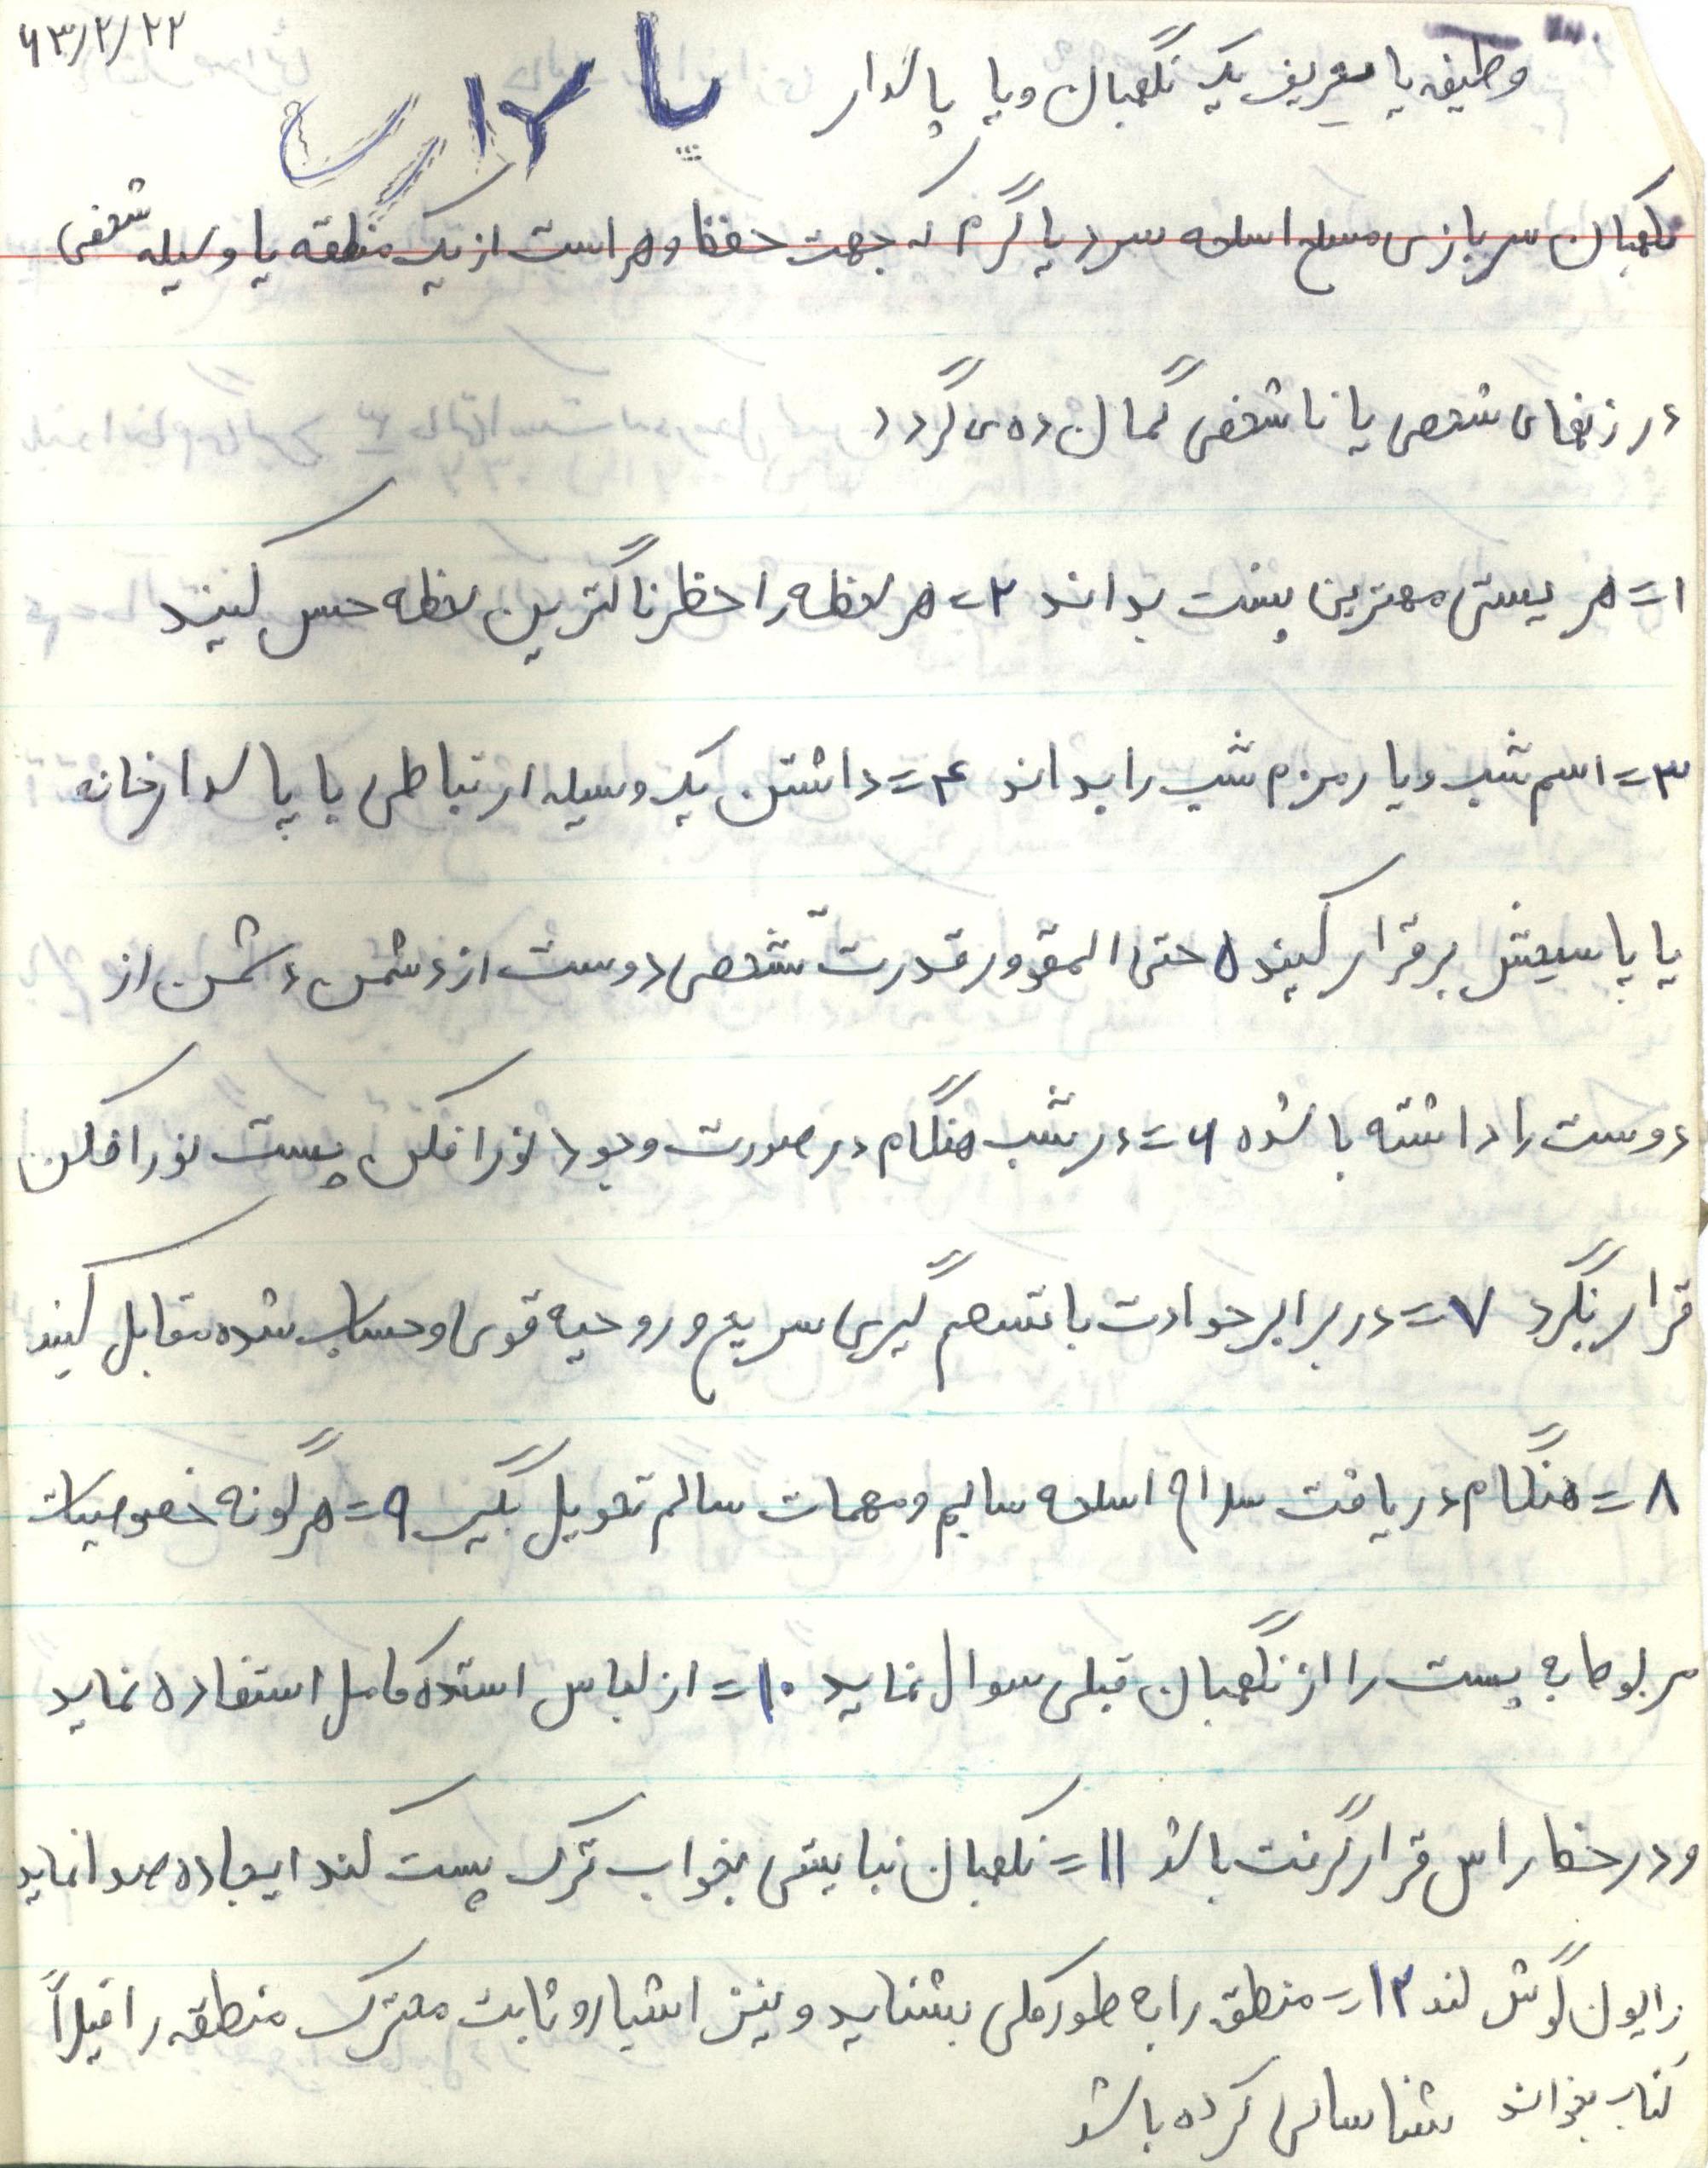 ۶۳/۲/۲۲
وظیفه یا تعریف یک نگهبان ویا پاسدار
نگهبان سربازی مسلح اسلحه سرد یا گرم که جهت حفظ وهراست از یک منطقه یا وسیله شخصی
در زنهای شخصی یا نا شخصی گمال ده می گردد
۱= هر پستی مهترین پست بداند ۲= هر لحظه را خطرناکترین لحظه حس کیند
۳= اسم شب ویا رمزم شب را بداند ۴= داشتن یک وسیله ارتباطی با پاسدارخانه
یا پاسبخش برقرار کیند ۵ حتی المقدور قدرت تشخصی دوست از دشمن دشمن از
دوست را داشته باشده ۶= در شب هنگام در صورت وجود نورافکن پست نورافکن
قرار نگرد ۷= در برابر حوادث با تصمم گیری سریع و روحیه قوی وحساب شده مقابل کیند
۸= هنگام دریافت سلاح اسلحه سالم ومهمات سالم تحویل بگیر ۹= هرگونه خصوصیات
مربوط به پست را از نگهبان قبلی سوال نماید ۱۰= از لباس استدکامل استفاده نماید
و در خط راس قرار گرفت باشد ۱۱= نگهبان نبایستی بخواب ترک پست کند ایجاده صدا نماید
رایون گوش کند ۱۲= منطق را به طور کلی بشناید و نیز اشیار و ثابت محترک منطقه را قبلاً
کتاب بخواند شناسای کرده باشد